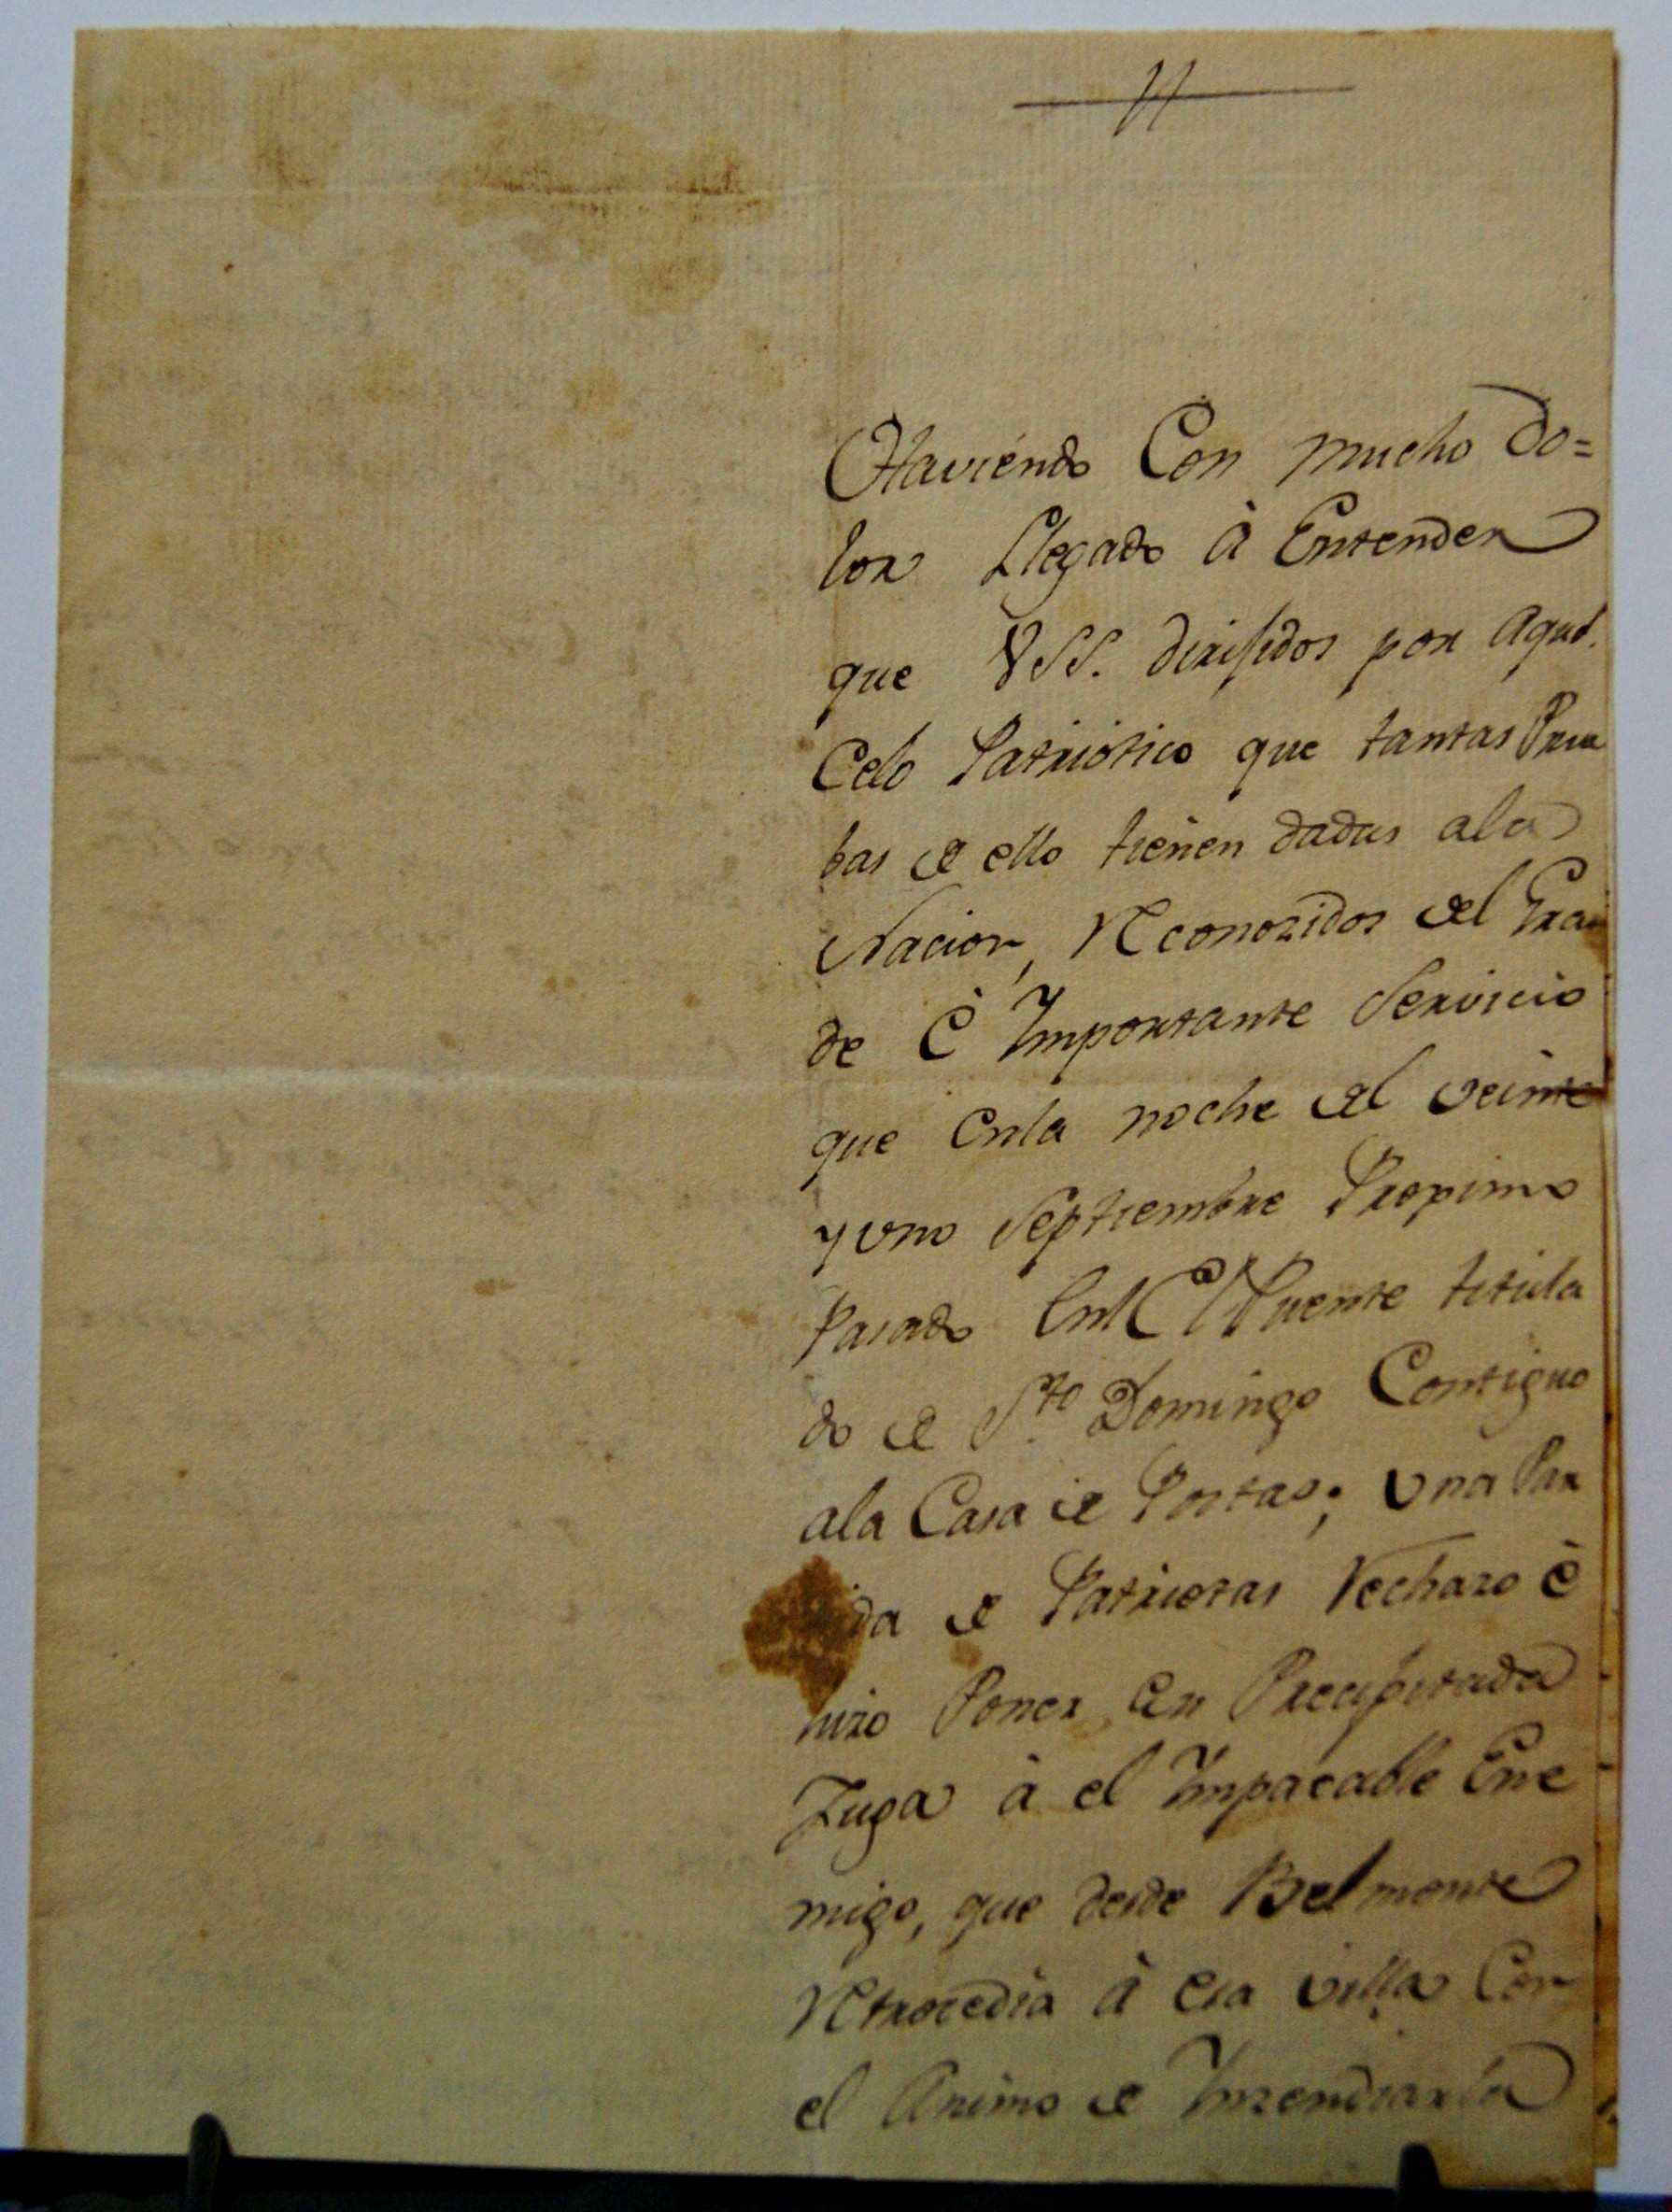 Haviendo Con mucho do=
lor Llegado à Entender
que VSS. dirijidos por aquel
Celo Patriotico que tantas Prue
bas de ello tienen dadas ala
Nacion, Reconozidos del Gran
de è Importante Servicio
que Enla noche del veinte
y uno Septiembre Proximo
Pasado Puente titula
do de Sto. Domingo Contiguo
ala Casa de Postas; una Par
da de Patriotas Rechazo è
hizo Poner en Precipitada
Fuga à el Ympacable Ene
migo, que desde Belmonte
Retrocedia à esa villa Con
el Animo de Ynzendiarla